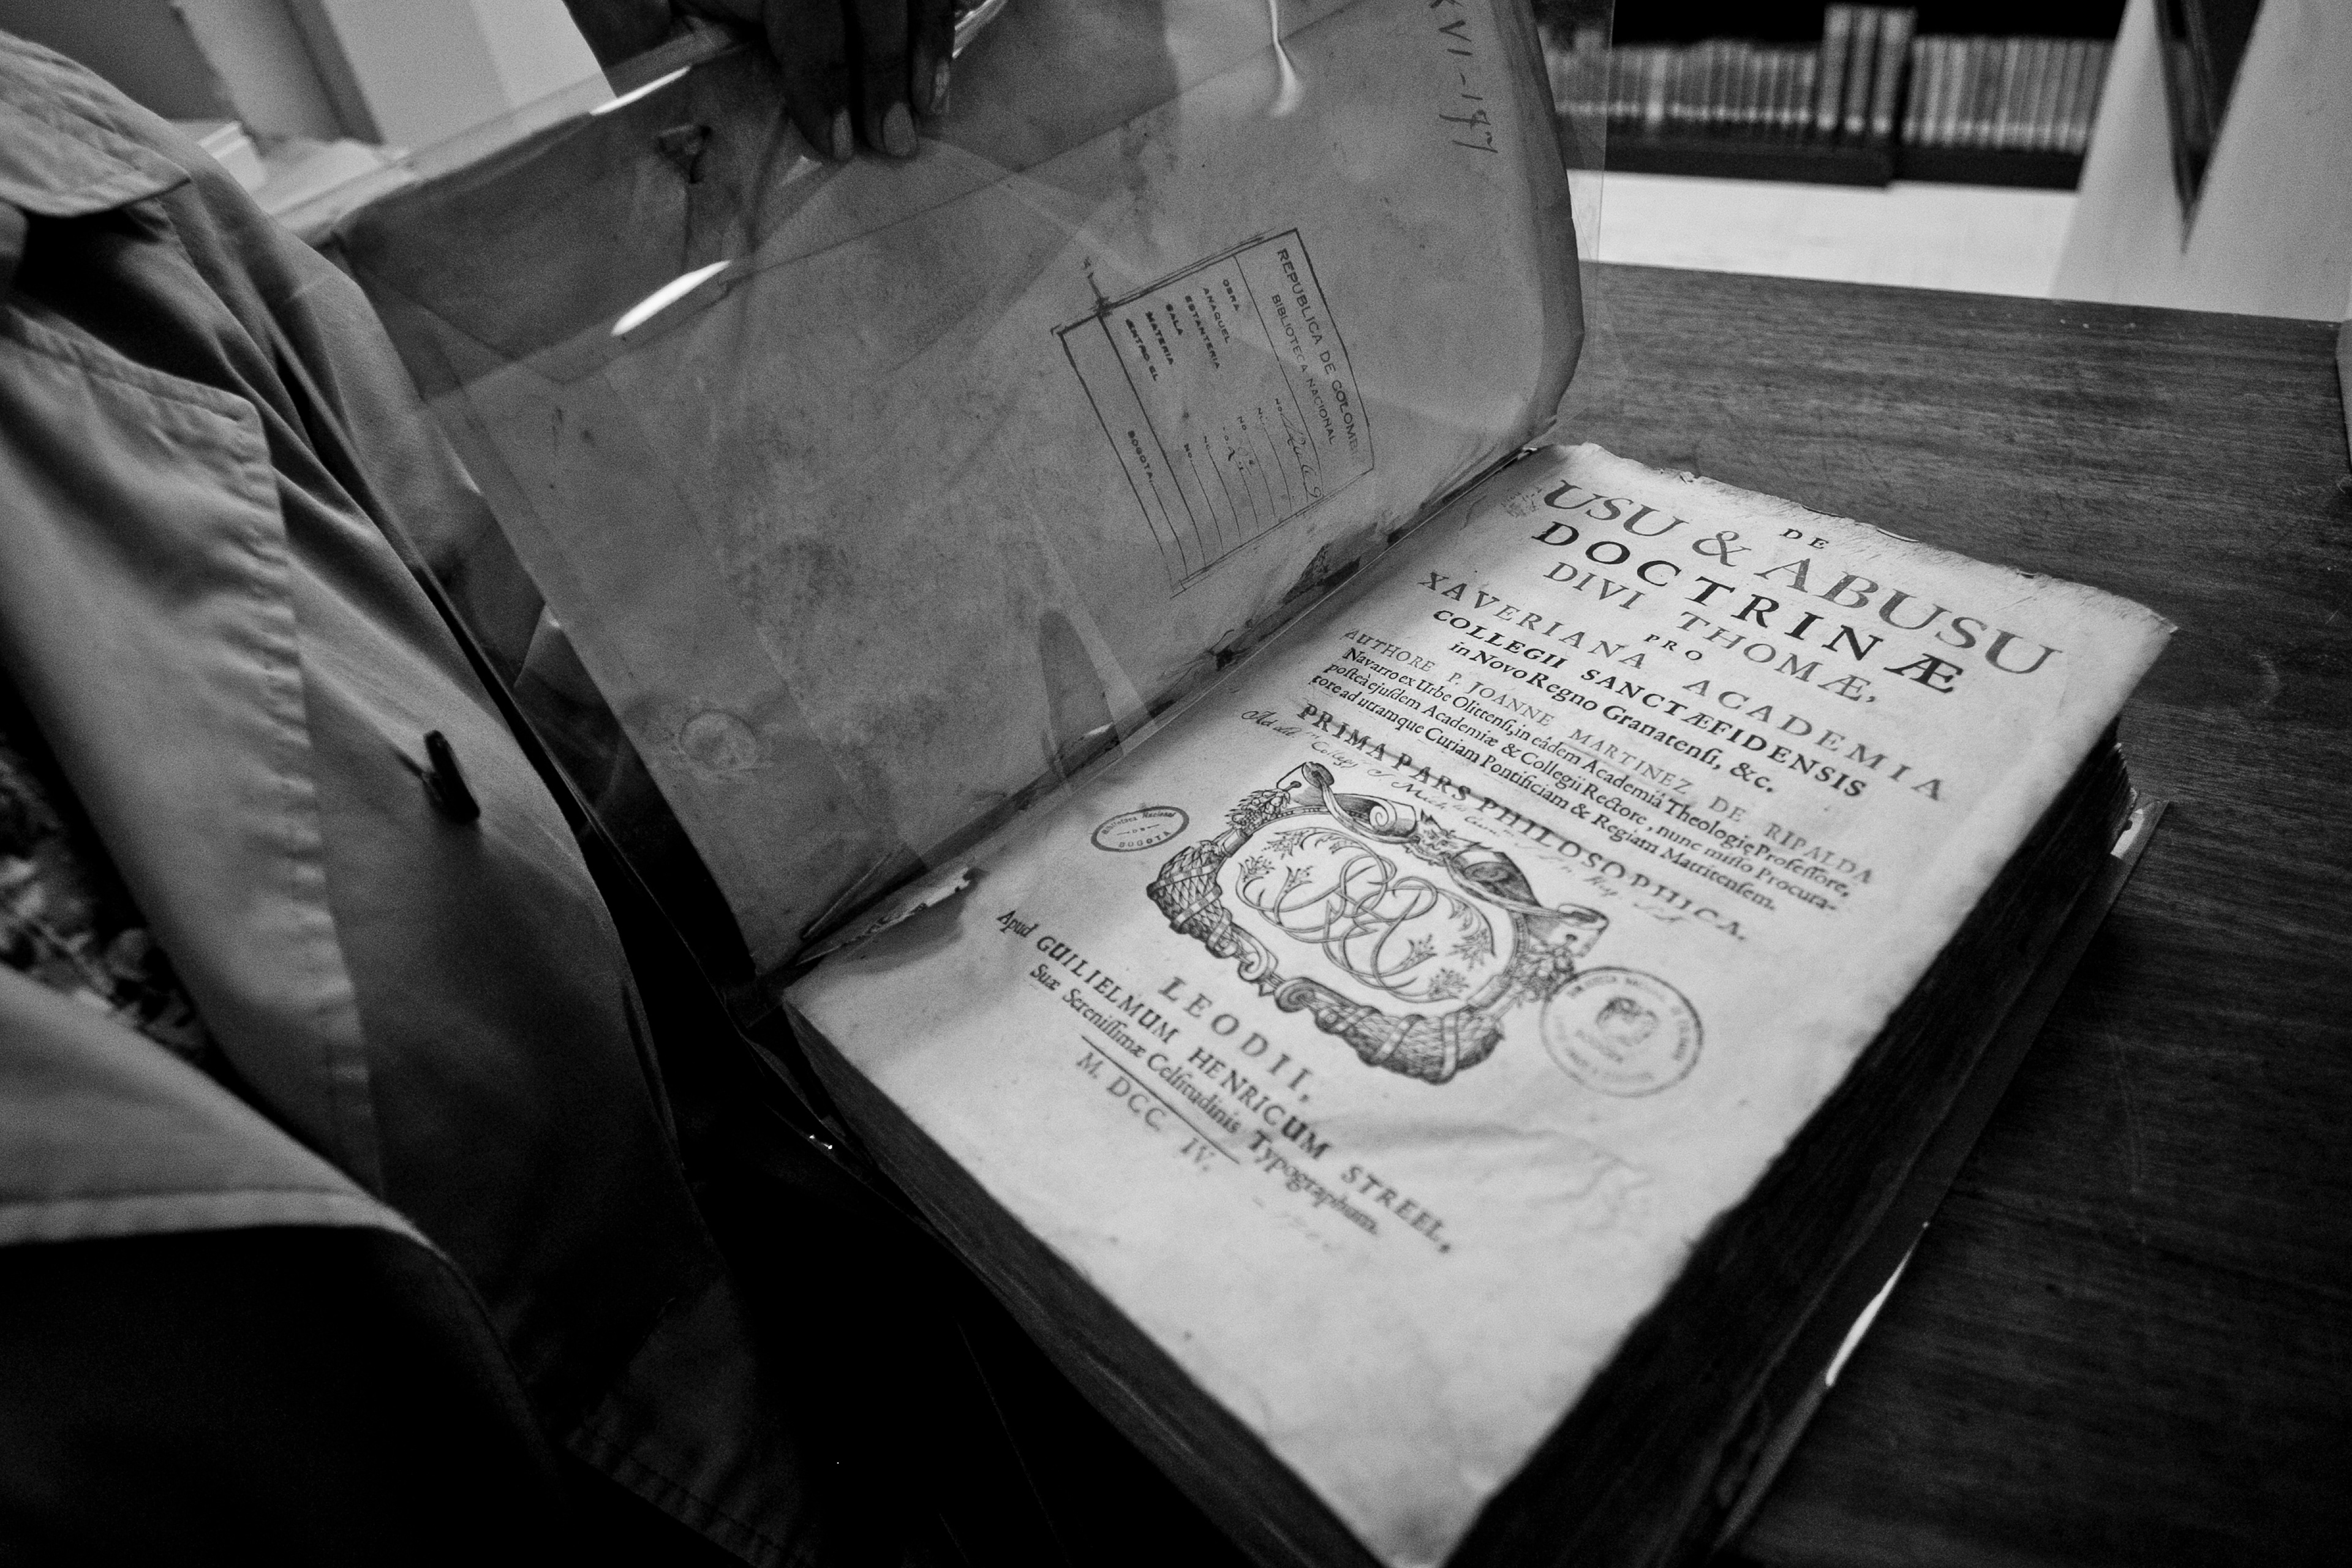 REPUBLICA DE COLOMBI
BIBLIOTECA NACIONAL
OBRA No.
ANAQUEL No.
ESTANTERIA No.
SALA No.
MATERIA No.
BOGOTA
DE
USU & ABUSU
DOCTRINÆ
DIVI THOMÆ,
PRO
XAVERIANA ACADEMIA
COLLEGII SANCTÆFIDENSIS
in Novo Regno Granatensi, &c.
AUTHORE P. JOANNE MARTINEZ DE RIPALDA
Navarro ex Urbe Olittensi, in eâdem Academiâ Theologiæ Professore,
posteà ejusdem Academiæ & Collegii Rectore, nunc misso Procura-
tore ad utramque Curiam Pontificiam & Regiam Matritensem.
PRIMA PARS PHILOSOPHICA.
Biblioteca Nacional
BOGOTA
LEODII,
Apud GUILIELMUM HENRICUM STREEL,
Suæ Serenissimæ Celsitudinis Typographum.
M. DCC. IV.